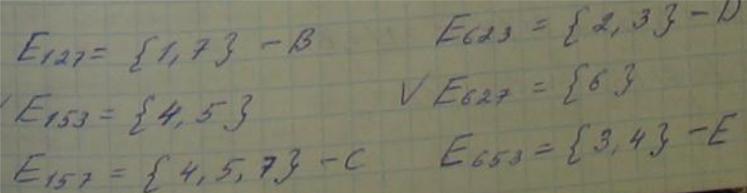 E127 = {1,7} - B
√ E153 = {4,5}
E157 = {4,5,7} - C
E623 = {2,3} - D
√ E627 = {6}
E653 = {3,4} - E